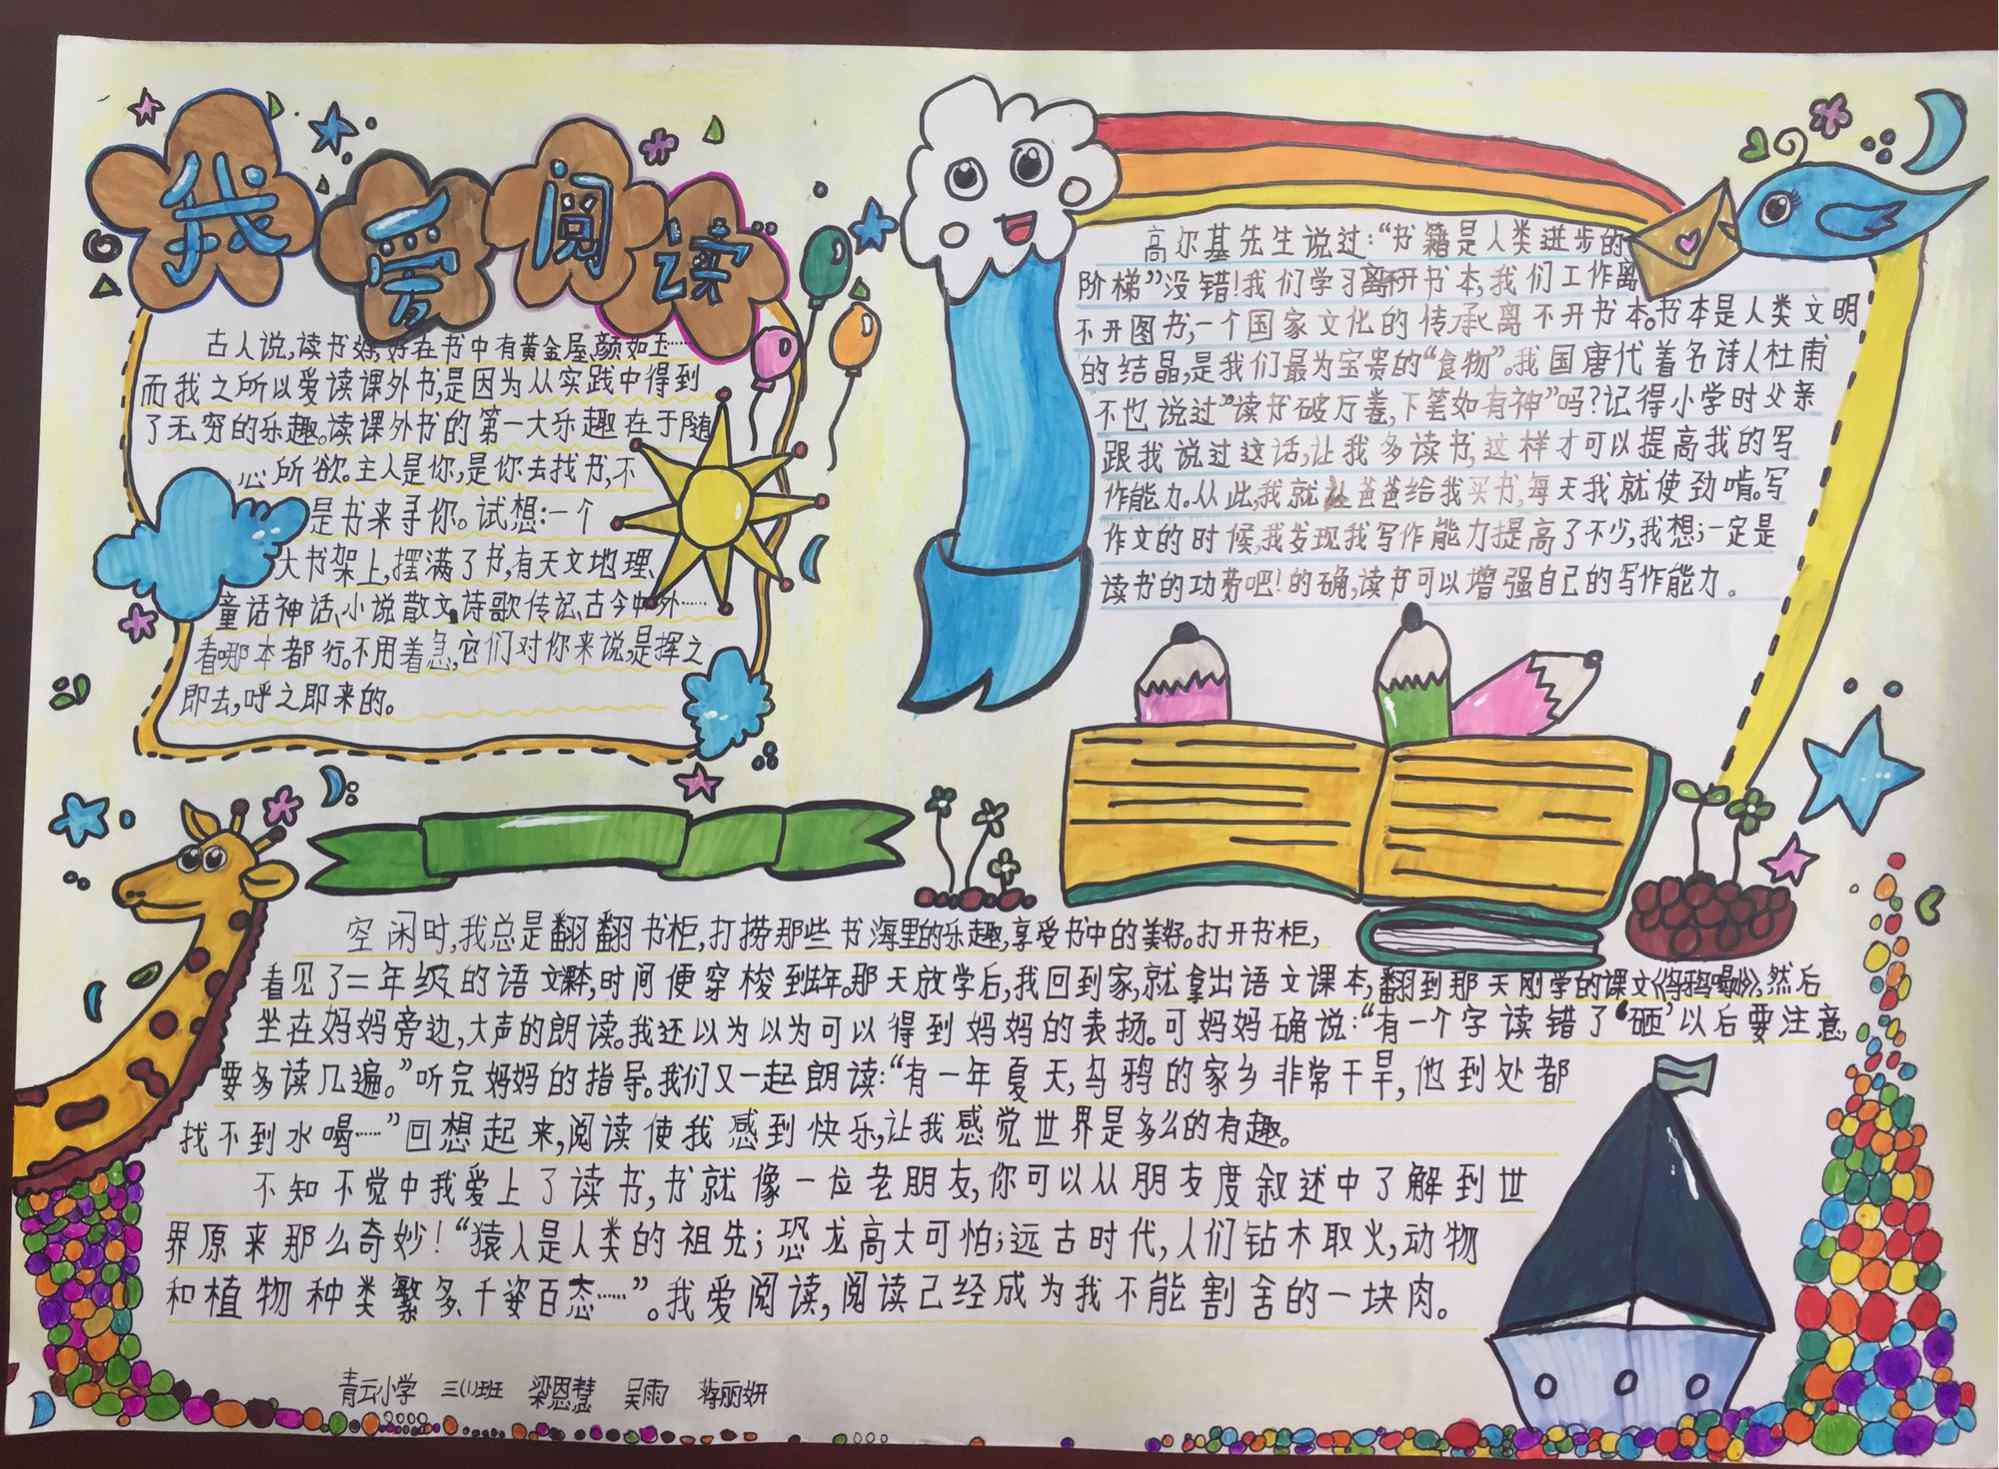 我爱阅读
古人说,读书好,好在书中有黄金屋,颜如玉……
而我之所以爱读课外书,是因为从实践中得到
了无穷的乐趣。读课外书的第一大乐趣在于随
心所欲。主人是你,是你去找书,不
是书来寻你。试想:一个
大书架上,摆满了书,有天文地理、
童话神话、小说散文、诗歌传记、古今中外……
看哪本都行。不用着急,它们对你来说,是挥之
即去,呼之即来的。
高尔基先生说过:“书籍是人类进步的
阶梯”没错!我们学习离不开书本,我们工作离
不开图书,一个国家文化的传承离不开书本。书本是人类文明
的结晶,是我们最为宝贵的“食物”。我国唐代着名诗人杜甫
不也说过”读书破万卷,下笔如有神”吗?记得小学时父亲
跟我说过这话,让我多读书,这样才可以提高我的写
作能力。从此,我就让爸爸给我买书,每天我就使劲啃。写
作文的时候,我发现我写作能力提高了不少,我想;一定是
读书的功劳吧!的确,读书可以增强自己的写作能力。
空闲时,我总是翻翻书柜,打捞那些书海里的乐趣,享受书中的美好。打开书柜,
看见了二年级的语文课本,时间便穿梭到去年。那天放学后,我回到家,就拿出语文课本,翻到那天刚学的课文《乌鸦喝水》,然后
坐在妈妈旁边,大声的朗读。我还以为以为可以得到妈妈的表扬。可妈妈确说:“有一个字读错了‘砸’以后要注意,
要多读几遍。”听完妈妈的指导。我们又一起朗读:“有一年夏天,乌鸦的家乡非常干旱,他到处都
找不到水喝……”回想起来,阅读使我感到快乐,让我感觉世界是多么的有趣。
不知不觉中我爱上了读书,书就像一位老朋友,你可以从朋友度叙述中了解到世
界原来那么奇妙!“猿人是人类的祖先;恐龙高大可怕;远古时代,人们钻木取火,动物
和植物种类繁多、千姿百态……”。我爱阅读,阅读已经成为我不能割舍的一块肉。
青云小学 三(1)班 梁恩慧 吴雨 蒋丽妍